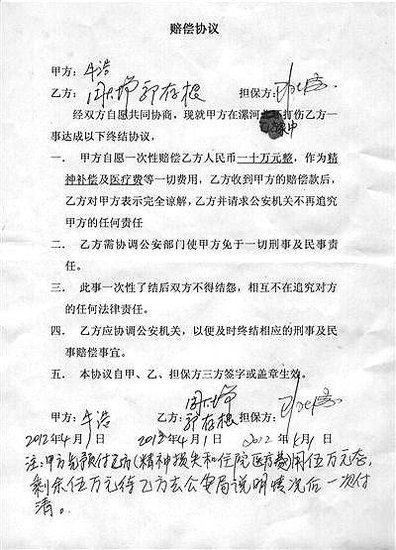 赔偿协议
甲方：牛浩
乙方： 郭存根 担保方：
经双方自愿共同协商，现就甲方在漯河 打伤乙方一
事达成以下终结协议，
一． 甲方自愿一次性赔偿乙方人民币一十万元整，作为精
神补偿及医疗费等一切费用，乙方收到甲方的赔偿款后，
乙方对甲方表示完全谅解，乙方并请求公安机关不再追究
甲方的任何责任
二． 乙方需协调公安部门使甲方免于一切刑事及民事责
任。
三． 此事一次性了结后双方不得结怨，相互不在追究对方
的任何法律责任。
四． 乙方应协调公安机关，以便及时终结相应的刑事及民
事赔偿事宜。
五． 本协议自甲、乙、担保方三方签字或盖章生效。
甲方：牛浩 乙方： 郭存根 担保方：
2012年4月1日 2012年4月1日 2012年 月1日
注：甲方 预付乙方（精神损失和住院医疗费）用伍万元整，
剩余伍万元待乙方去公安局说明情况后一次付
清。